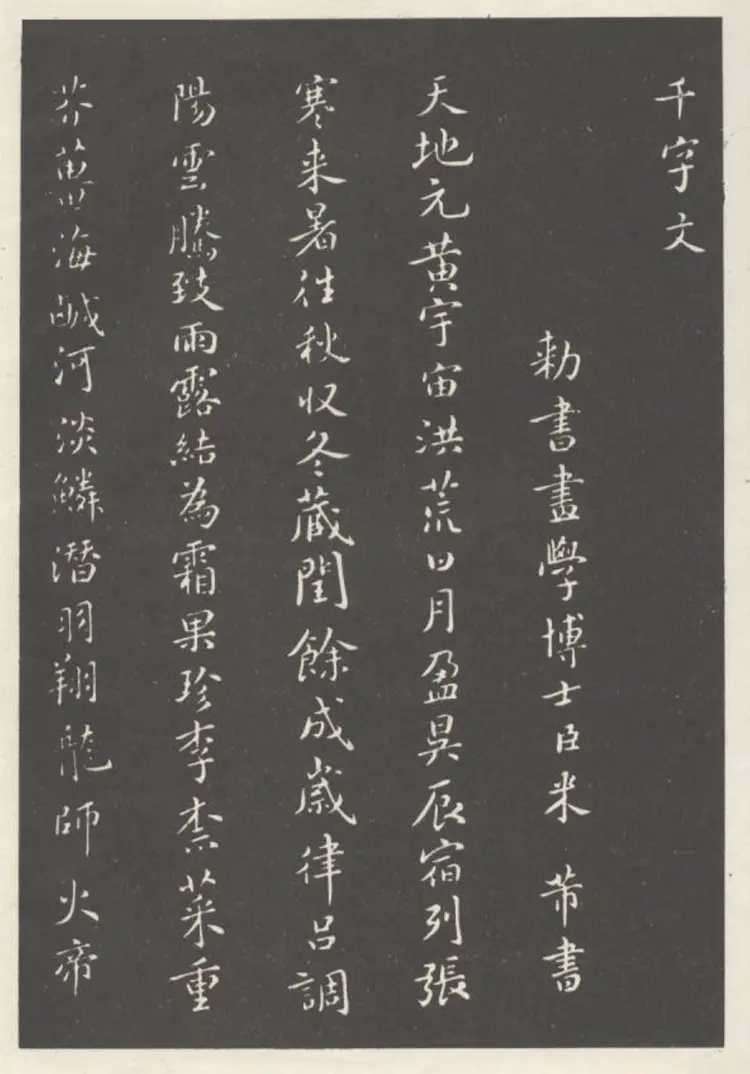 千字文
勅書畫學博士臣米芾書
天地元黄宇宙洪荒日月盈昃辰宿列張
寒来暑往秋收冬蔵閏餘成嵗律吕調
陽雲騰致雨露結為霜果珍李柰菜重
芥薑海鹹河淡鱗潛羽翔龍師火帝